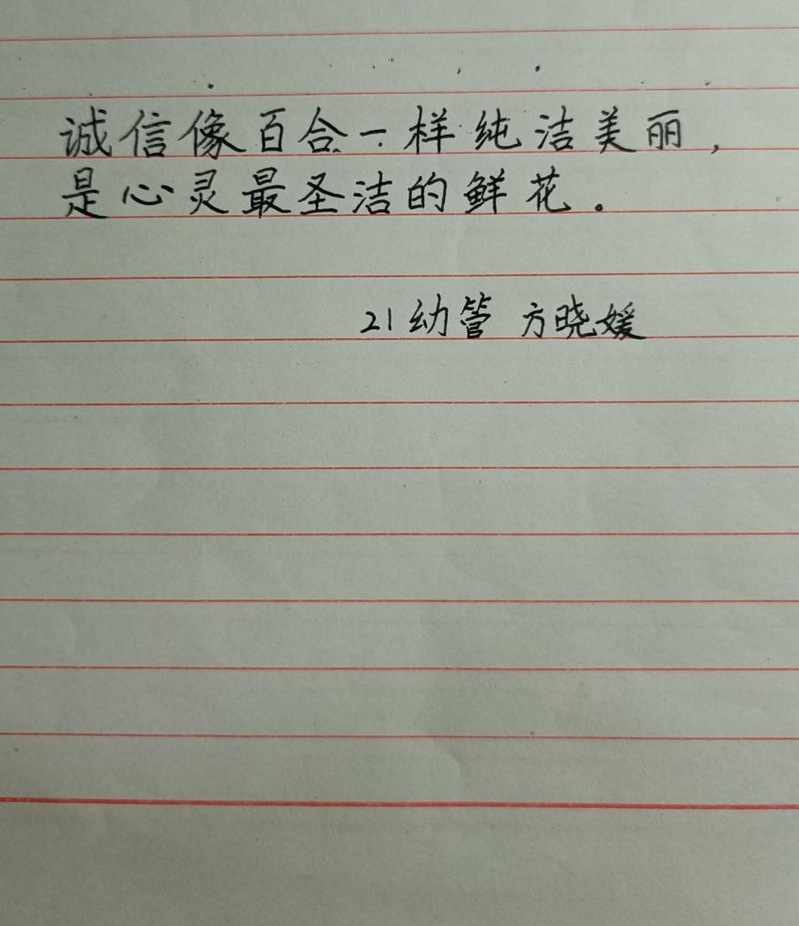 诚信像百合一样纯洁美丽，
是心灵最圣洁的鲜花。
21幼管 方晓媛